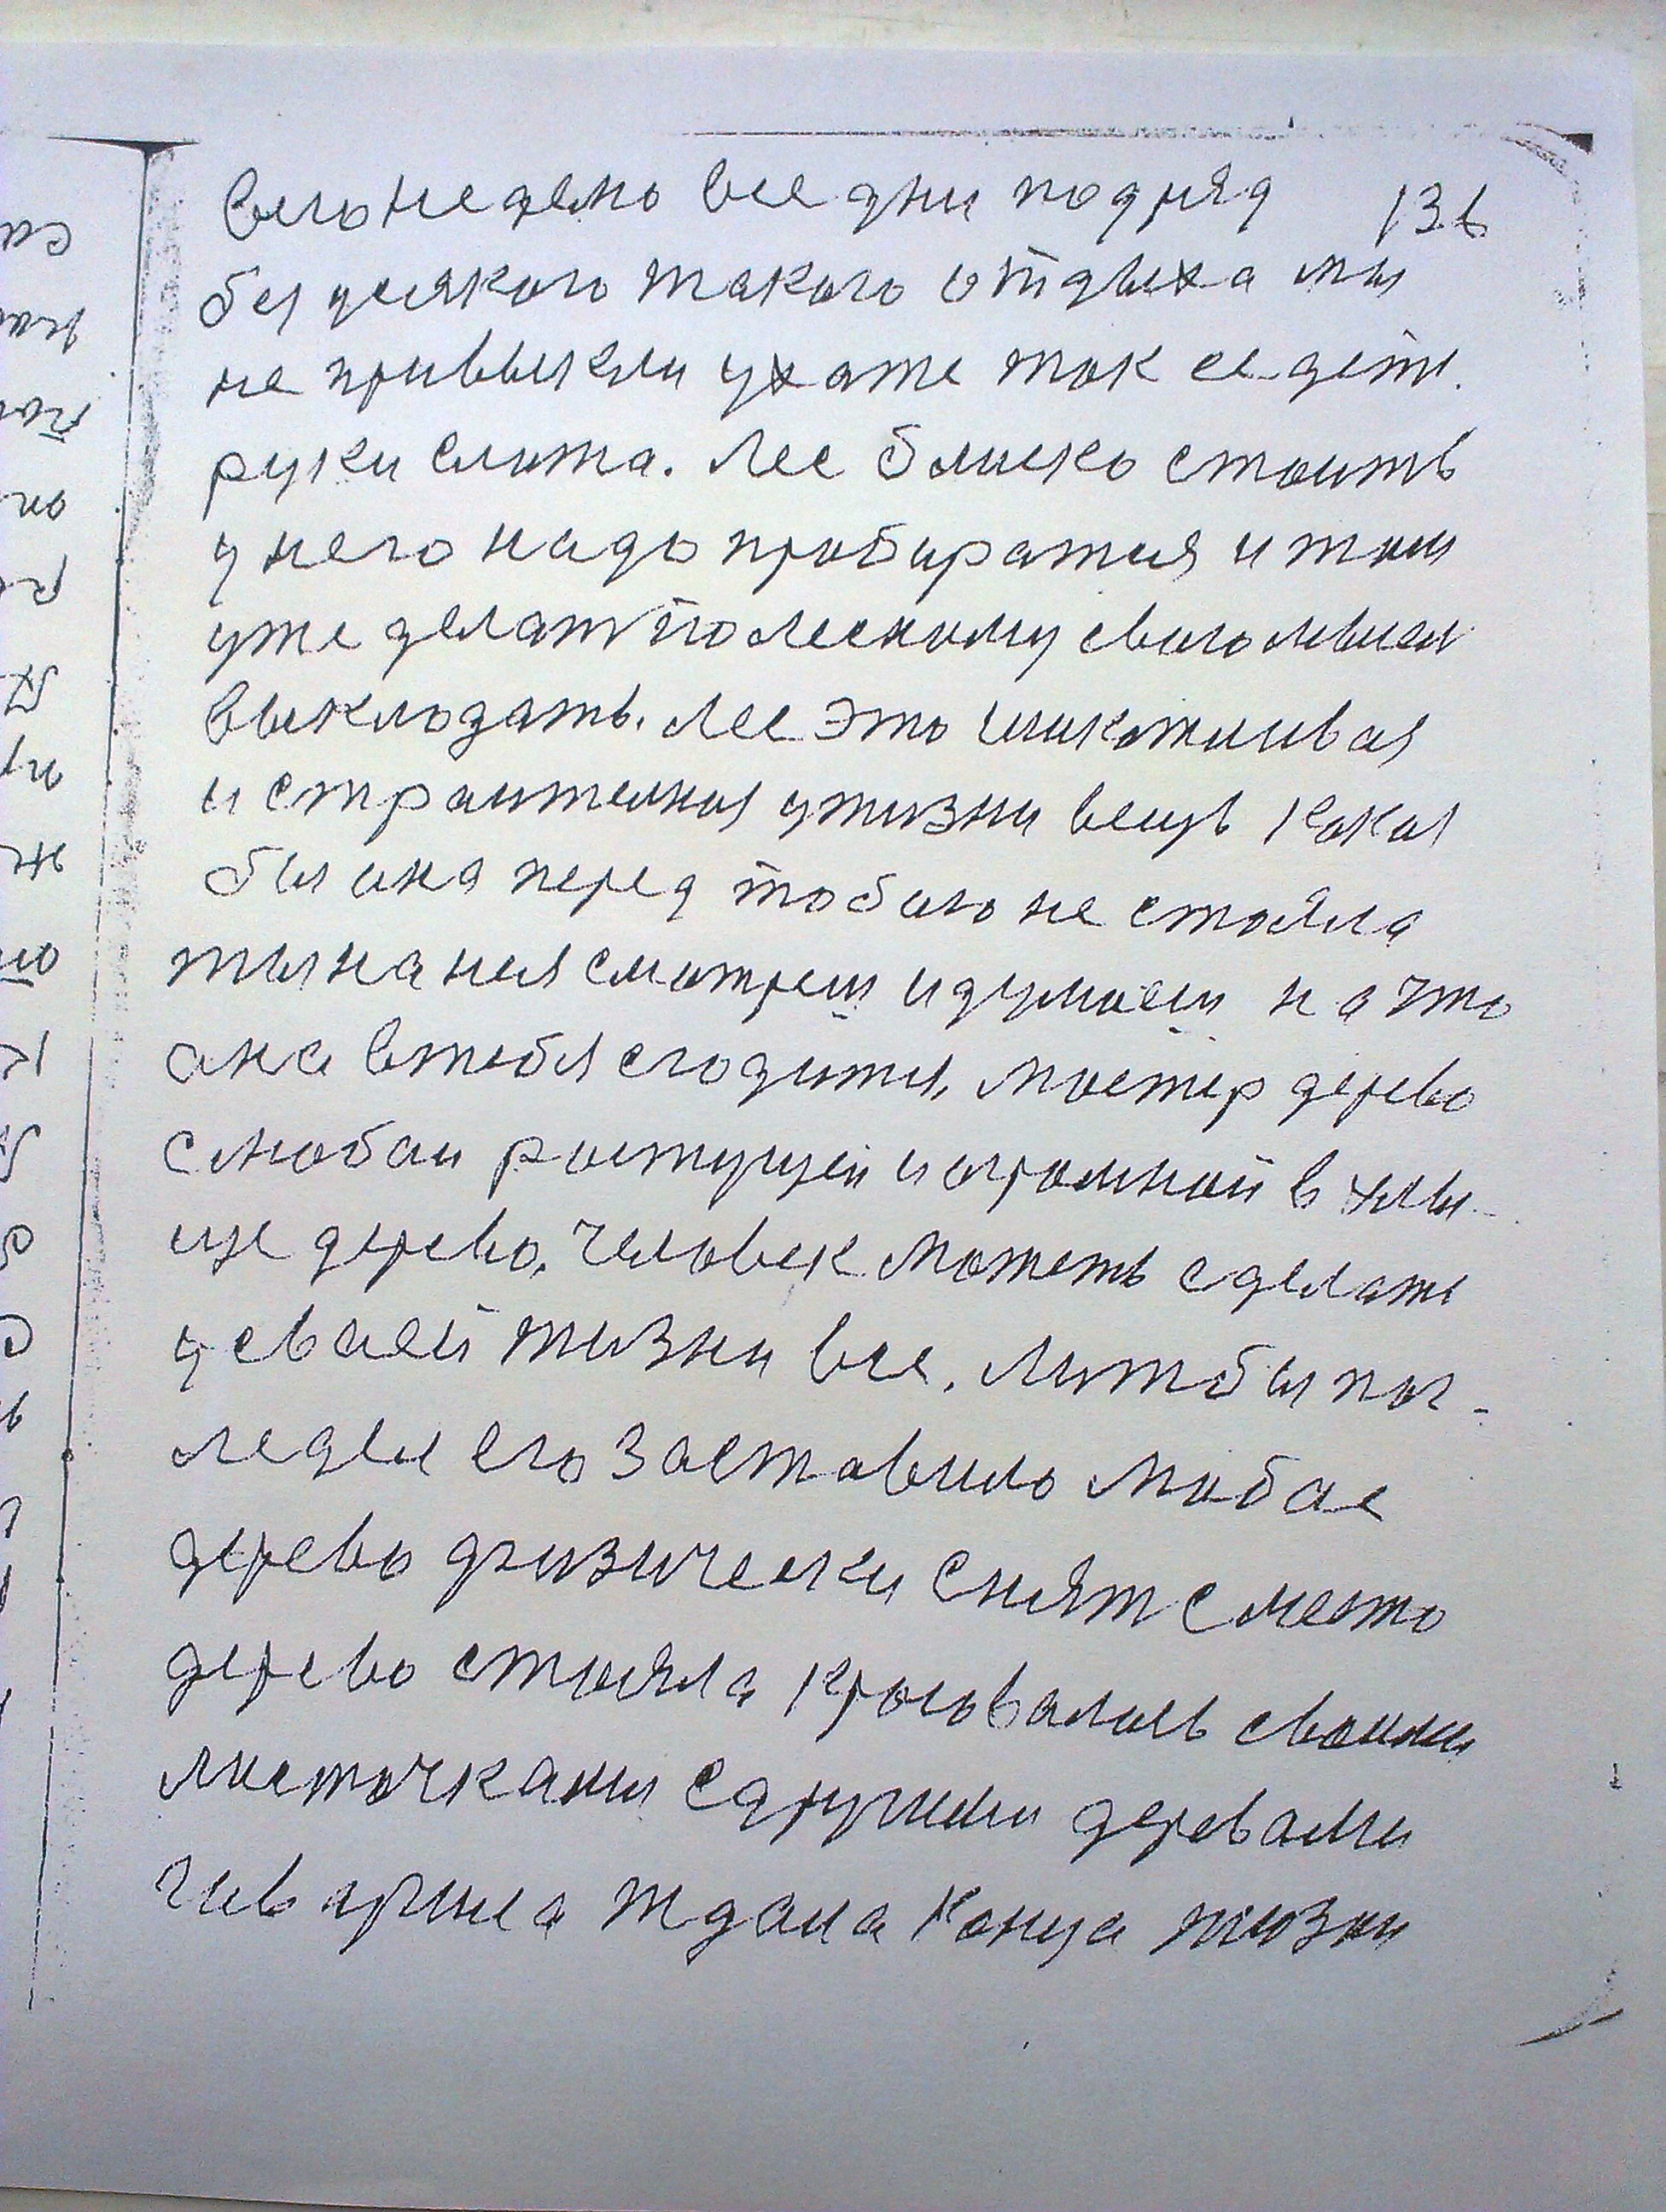 всю неделю все дни подряд 136
без усякого такого отдыха мы
не привыкли ухате так седеть.
руки сложа. Лес блиско стоить
у него надо пробиратися и там
уже делать по лесному свою мысл
выклодать. Лес это
и страителная у жизни вещь какая
бы ана перед тобою не стояла
ты на ния смотреш и думаеш на что
ана втебя сгодится, мастер дерево
с любои ростущей и огромной в
ще дерево. Человек можеть сделать
у своей жизни все, Литбы пос-
ледки его заставило любае
дерево физически снять с места
дерево стояла красовалась своими
листочками с другими деревами
гаварила ждала конца жизни